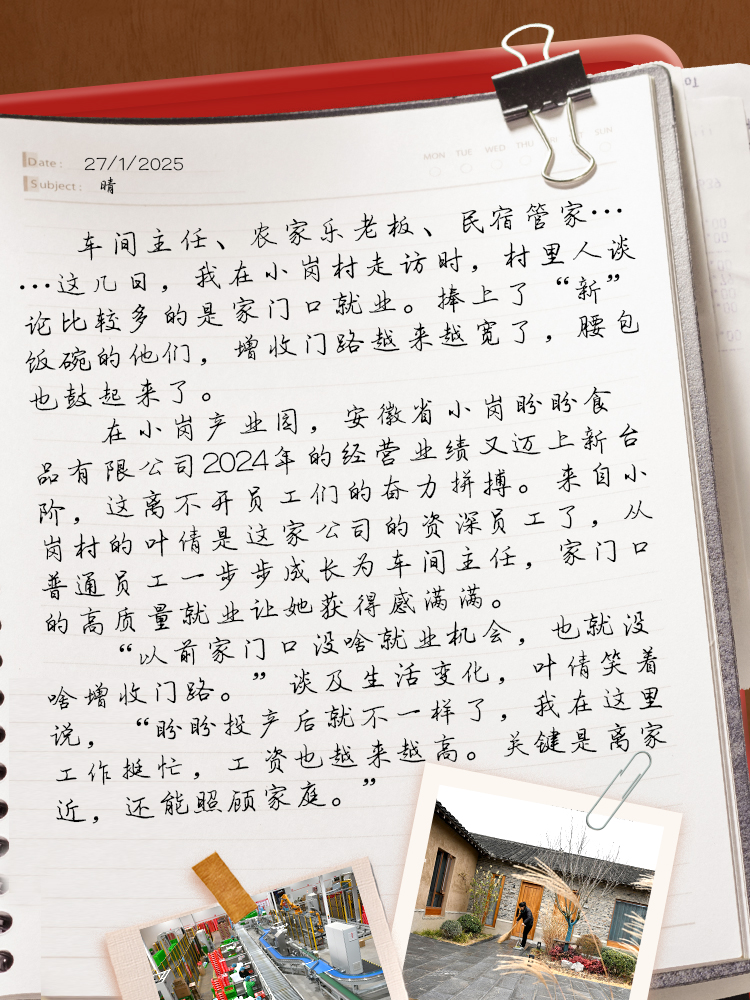 Date: 27/1/2025
MON TUE WED THU SUN
Subject: 晴
To
车间主任、农家乐老板、民宿管家…
…这几日，我在小岗村走访时，村里人谈
论比较多的是家门口就业。捧上了“新”
饭碗的他们，增收门路越来越宽了，腰包
也鼓起来了。
在小岗产业园，安徽省小岗盼盼食
品有限公司2024年的经营业绩又迈上新台
阶，这离不开员工们的奋力拼搏。来自小
岗村的叶倩是这家公司的资深员工了，从
普通员工一步步成长为车间主任，家门口
的高质量就业让她获得感满满。
“以前家门口没啥就业机会，也就没
啥增收门路。”谈及生活变化，叶倩笑着
说，“盼盼投产后就不一样了，我在这里
工作挺忙，工资也越来越高。关键是离家
近，还能照顾家庭。”